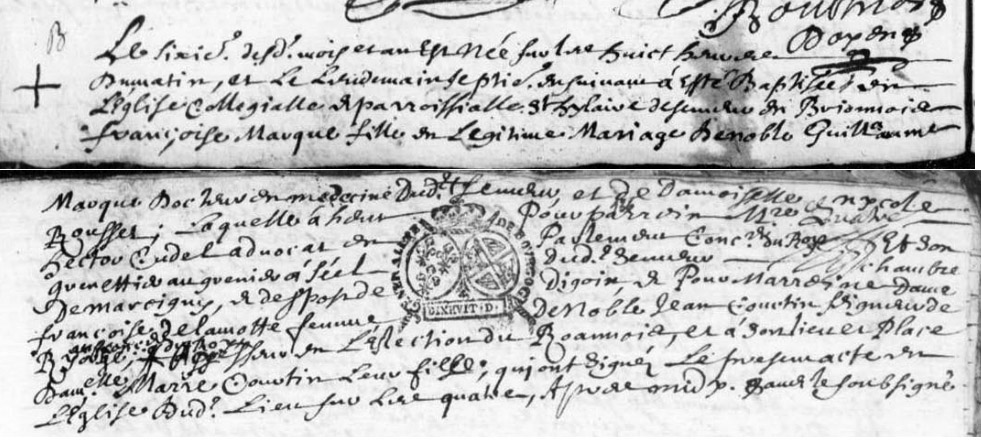 B
Doyen
Le sixie. desd. mois et an Est Née sur les huict heures
Du matin, et Le Lendemain septie. ensuivant a Esté Baptisée en
L'Eglise Collegialle et parroissialle St hylaire de semeur en Brionnois
françoise Marque fille en Legitime Mariage De noble Guillaume
Marque Docteur en medecine Dud. semeur, et De Damoiselle nycole
Rousset; Laquelle a heu Pour parrein Mre
hector Cudel advocat en Parlement Concer. du Roy Et son
grenettier au grenier a Sel Dud. semeur chambre
De marcigny, et de Digoin, et Pour Marreine Dame
françoise de lamotte femme De Noble Jean Courtin seigneur de
en L'Eslection du Roannois, et a son lieu et Place
Dam.elle Marie Courtin Leur fille; qui ont signé Le present acte en
L'Eglise Dud. Lieu sur Les quatre, Apres midy. soubsigné